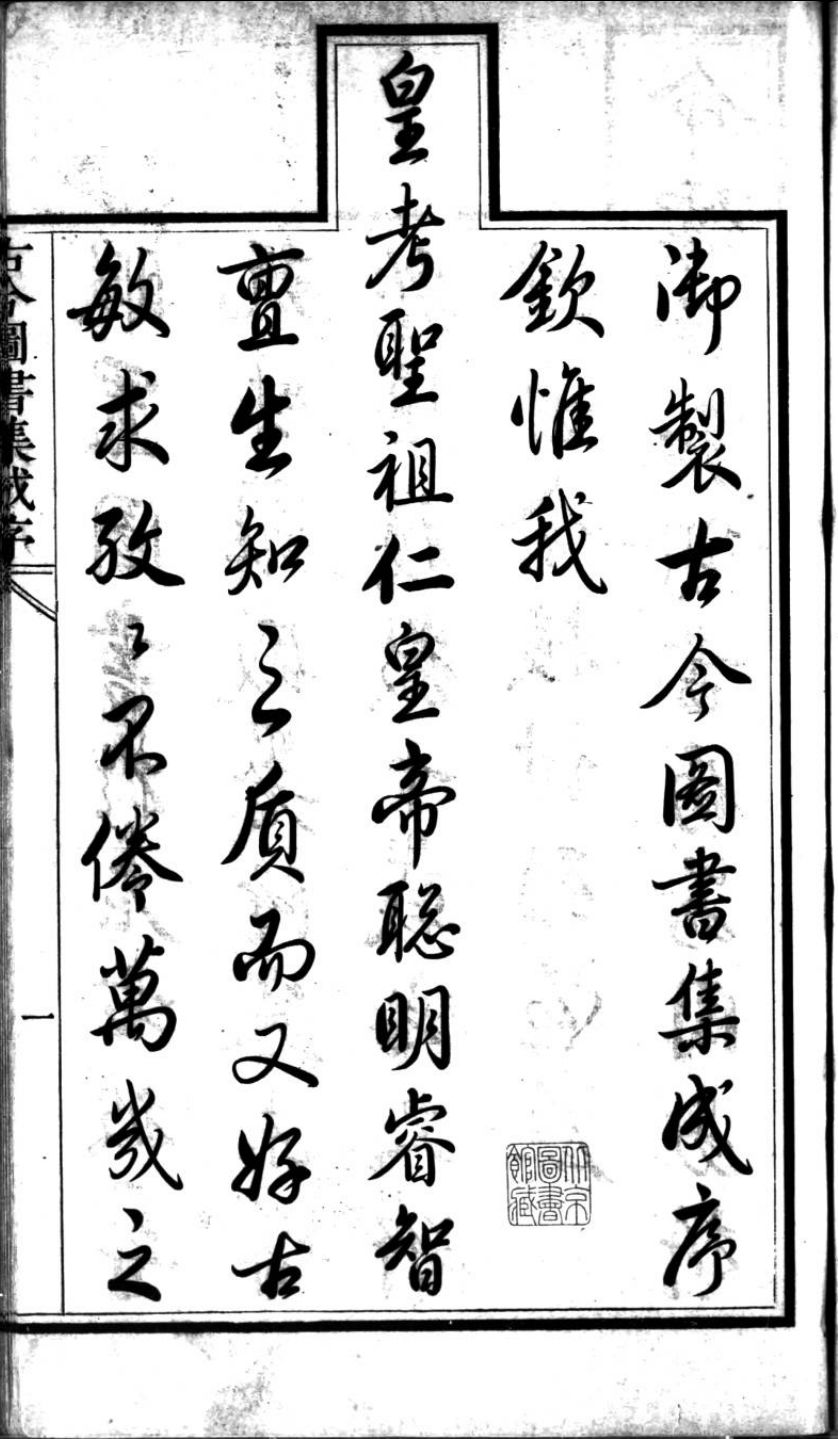 御製古今圖書集成序
欽惟我
皇考聖祖仁皇帝聰明睿智
亶生知之質而又好古
敏求孜〻不倦萬幾之
古今圖書集成序
一
北京圖書館藏